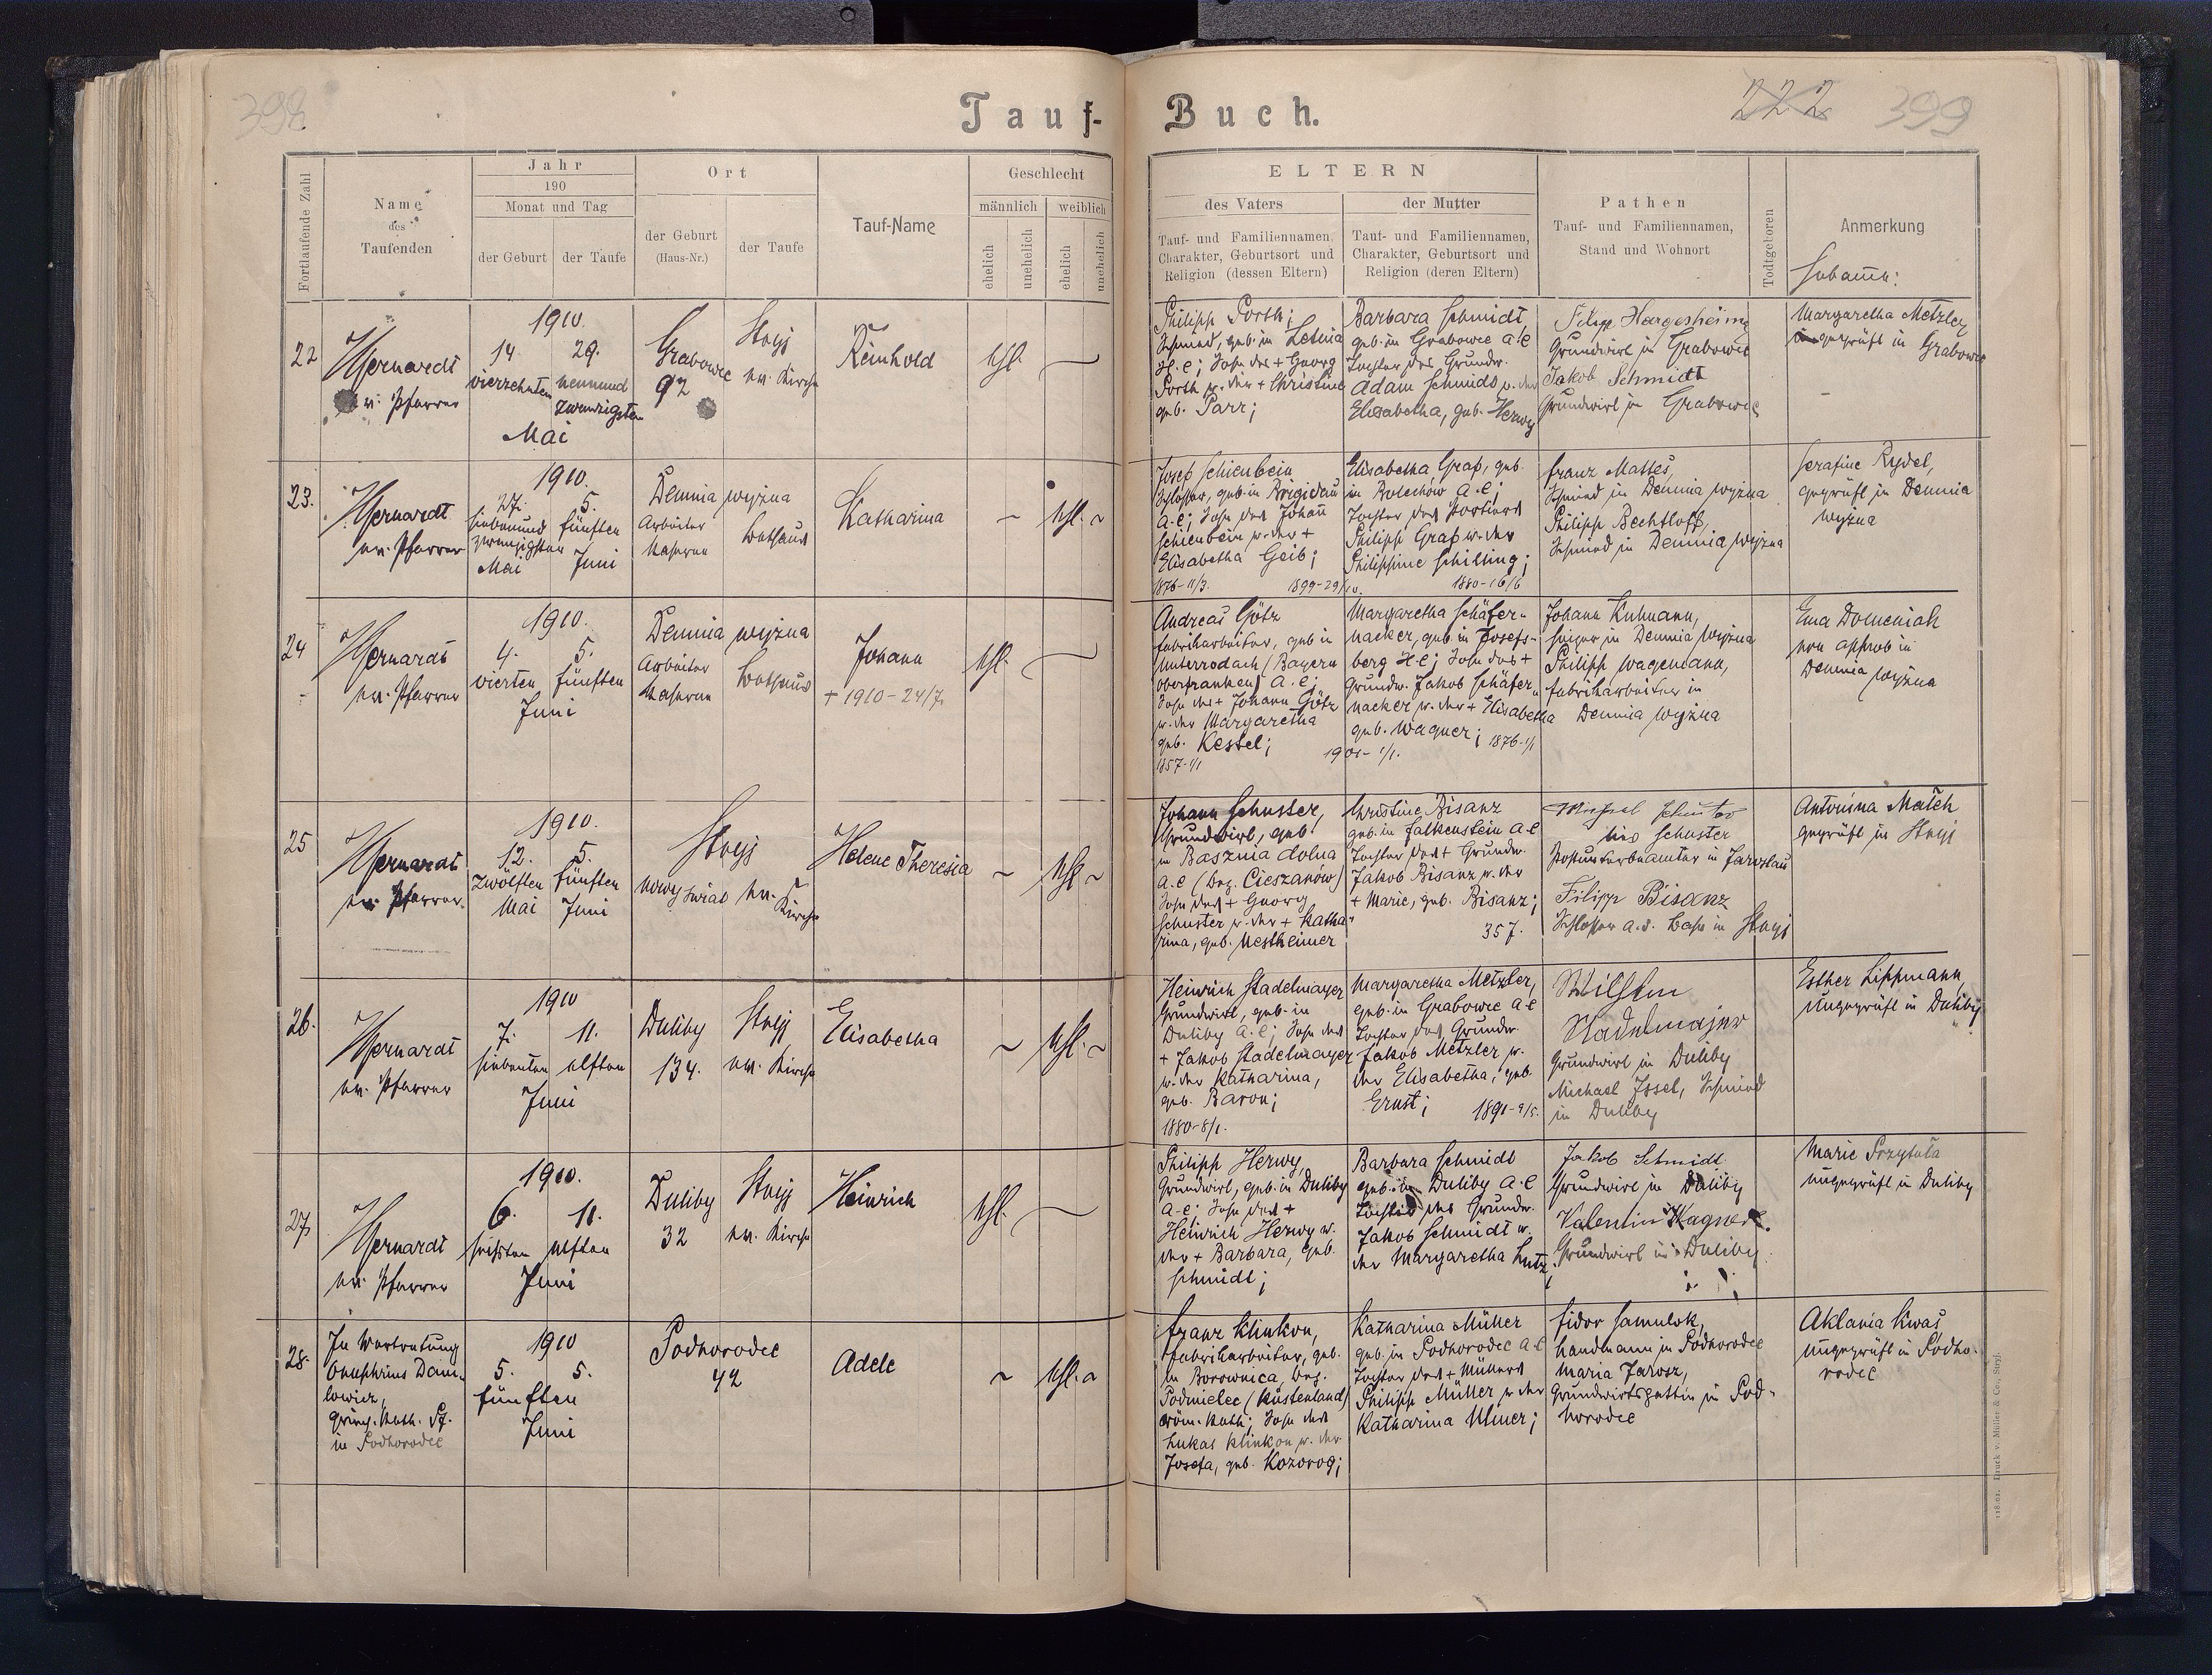 398
Tauf-
Buch.
222
399
Fortlaufende Zahl
Name
des
Taufenden
Jahr
190
Monat und Tag
der Geburt
der Taufe
Ort
der Geburt
(Haus-Nr.)
der Taufe
Tauf-Name
Geschlecht
männlich
weiblich
ehelich
unehelich
ehelich
unehelich
ELTERN
des Vaters
Tauf- und Familiennamen,
Charakter, Geburtsort und
Religion (dessen Eltern)
der Mutter
Tauf- und Familiennamen,
Charakter, Geburtsort und
Religion (deren Eltern)
Pathen
Tauf- und Familiennamen,
Stand und Wohnort
Todtgeboren
Anmerkung
Hebamme:
22
ev. Pfarrer
1910.
14.
29.
vierzehnten
neunund
zwanzigsten
Mai
Grabowce
92
Stryj
ev. Kirche
Reinhold
ehl.
Philipp Porth;
Schmied, geb. in
H.C; Sohn des + Georg
Porth u. der + Christine
geb. Parr;
Barbara Schmidt,
geb. in Grabowce A.C
Tochter des Grundw.
Adam Schmidt u. der
Elisabetha, geb. Herwy
Filipp Hargesheimer
Grundwirt in Grabowce
Jakob Schmidt
Grundwirt in Grabowce
Margaretha Metzler
ungeprüft in Grabowce
23.
ev. Pfarrer
1910.
27.
5.
siebenund
zwanzigsten
fünften
Mai
Juni
Demnia wyżna
Arbeiter
Kaserne
Bethaus
Katharina
ehl.
Josef Schienbein
Schlosser, geb. in Brigidau
A.C; Sohn des Johann
Schienbein u. der +
Elisabetha Geib;
1876-11/3.
1899-29/10.
Elisabetha Graf, geb.
in Bolechów A.C;
Tochter des Portiers
Philipp Graf u. der
Philippine Schilling;
1880-16/6
Franz Mattes,
Schmied in Demnia wyżna
Philipp Bechtloff,
Schmied in Demnia wyżna
Serafine Rydel,
geprüft in Demnia
wyżna
24
ev. Pfarrer
1910.
4.
5.
vierten
fünften
Juni
Demnia wyżna
Arbeiter
Kaserne
Bethaus
Johann
+ 1910-24/7.
ehl.
Andreas Götz
Fabriksarbeiter, geb. in
Unterrodach (Bayern
Oberfranken) A.C;
Sohn des + Johann Götz
u. der Margaretha
geb. Kestel;
1857-1/1
1901-1/1.
Margaretha Schäfer-
nacker, geb. in Josefs-
berg H.C; Sohn des +
Grundw. Jakob Schäfer-
nacker u. der + Elisabetha
geb. Wagner; 1876-1/1
Johann Kuhmann,
Heizer in Demnia wyżna
Philipp Wagemann,
Fabriksarbeiter in
Demnia wyżna
Ema Domeniak
non approb in
Demnia wyżna
25
ev. Pfarrer.
1910.
12.
5.
zwölften
fünften
Mai
Juni
Stryj
nowy świat
ev. Kirche
Helene Theresia
ehl.
Johann Schuster,
Grundwirt, geb.
in Basznia dolna
A.C (Bez. Cieszanów)
Sohn des + Georg
Schuster u. der + Katha-
rina, geb. Mestheimer
Christine Bisanz
geb. in Falkenstein A.C
Tochter des + Grundw.
Jakob Bisanz u. der
+ Marie, geb. Bisanz;
357.
Schuster
Postunterbeamter in Jaroslau
Filipp Bisanz
Schlosser a.d. Bahn in Stryj
Antonina Match
geprüft in Stryj
26.
ev. Pfarrer
1910
7.
11.
siebenten
elften
Juni
Duliby
134.
Stryj
ev. Kirche
Elisabetha
ehl.
Heinrich Stadelmayer
Grundwirt, geb. in
Duliby A.C; Sohn des
+ Jakob Stadelmayer
u. der Katharina,
geb. Baron;
1880-8/1.
Margaretha Metzler,
geb. in Grabowce A.C
Tochter des Grundw.
Jakob Metzler u.
der Elisabetha, geb.
Ernst;
1891-9/5.
Wilhelm
Stadelmajer
Grundwirt in Duliby
Michael Issel, Schmied
in Duliby
Esther Lippmann,
ungeprüft in Duliby
27
ev. Pfarrer
1910.
6.
11.
sechsten
elften
Juni
Duliby
32
Stryj
ev. Kirche
Heinrich
ehl.
Philipp Herwy,
Grundwirt, geb. in Duliby
A.C; Sohn des +
Heinrich Herwy u.
der + Barbara, geb.
Schmidt;
Barbara Schmidt
geb. in Duliby A.C
Tochter des Grundw.
Jakob Schmidt u.
der Margaretha Lutz;
Jakob Schmidt
Grundwirt in Duliby
Valentin Wagner.
Grundwirt in Duliby.
Marie Przytuła
ungeprüft in Duliby
28.
In Vertretung
Onuphrius Dani-
lowicz,
griech. kath. Pf.
in Podhorodce
1910
5.
5.
fünften
Juni
Podhorodce
42
Adele
ehl.
Franz Klinkon,
Fabriksarbeiter, geb.
in Borownica, Bez.
Podmielec (Küstenland)
röm. kath; Sohn des
Lukas Klinkon u. der
Josefa, geb. Kozorog;
Katharina Müller
geb. in Podhorodce A.C
Tochter des + Müllers
Philipp Müller u. der
Katharina Ulmer;
Sidor Samulok,
Landmann in Podhorodce
Maria Jarosz,
Grundwirtsgattin in Pod-
horodce
Aklania Kwaś
ungeprüft in Podho-
rodce
Druck v. Müller & Co., Stryj.